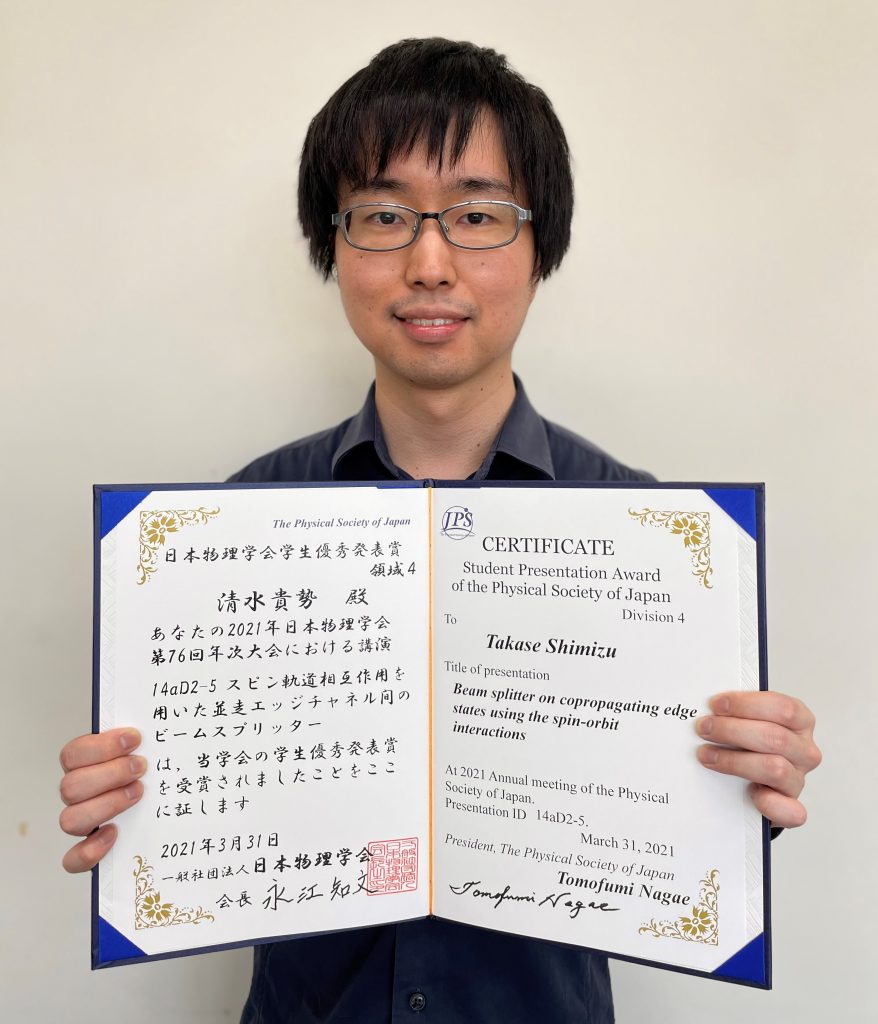 The Physical Society of Japan
日本物理学会学生優秀発表賞
領域4
清水貴勢 殿
あなたの2021年日本物理学会
第76回年次大会における講演
14aD2-5 スピン軌道相互作用を
用いた並走エッジチャネル間の
ビームスプリッター
は，当学会の学生優秀発表賞
を受賞されましたことをここ
に証します
2021年3月31日
一般社団法人日本物理学会
会長 永江知文
JPS
CERTIFICATE
Student Presentation Award
of the Physical Society of Japan
Division 4
To
Takase Shimizu
Title of presentation
Beam splitter on copropagating edge
states using the spin-orbit
interactions
At 2021 Annual meeting of the Physical
Society of Japan.
Presentation ID 14aD2-5.
March 31, 2021
President, The Physical Society of Japan
Tomofumi Nagae
Tomofumi Nagae